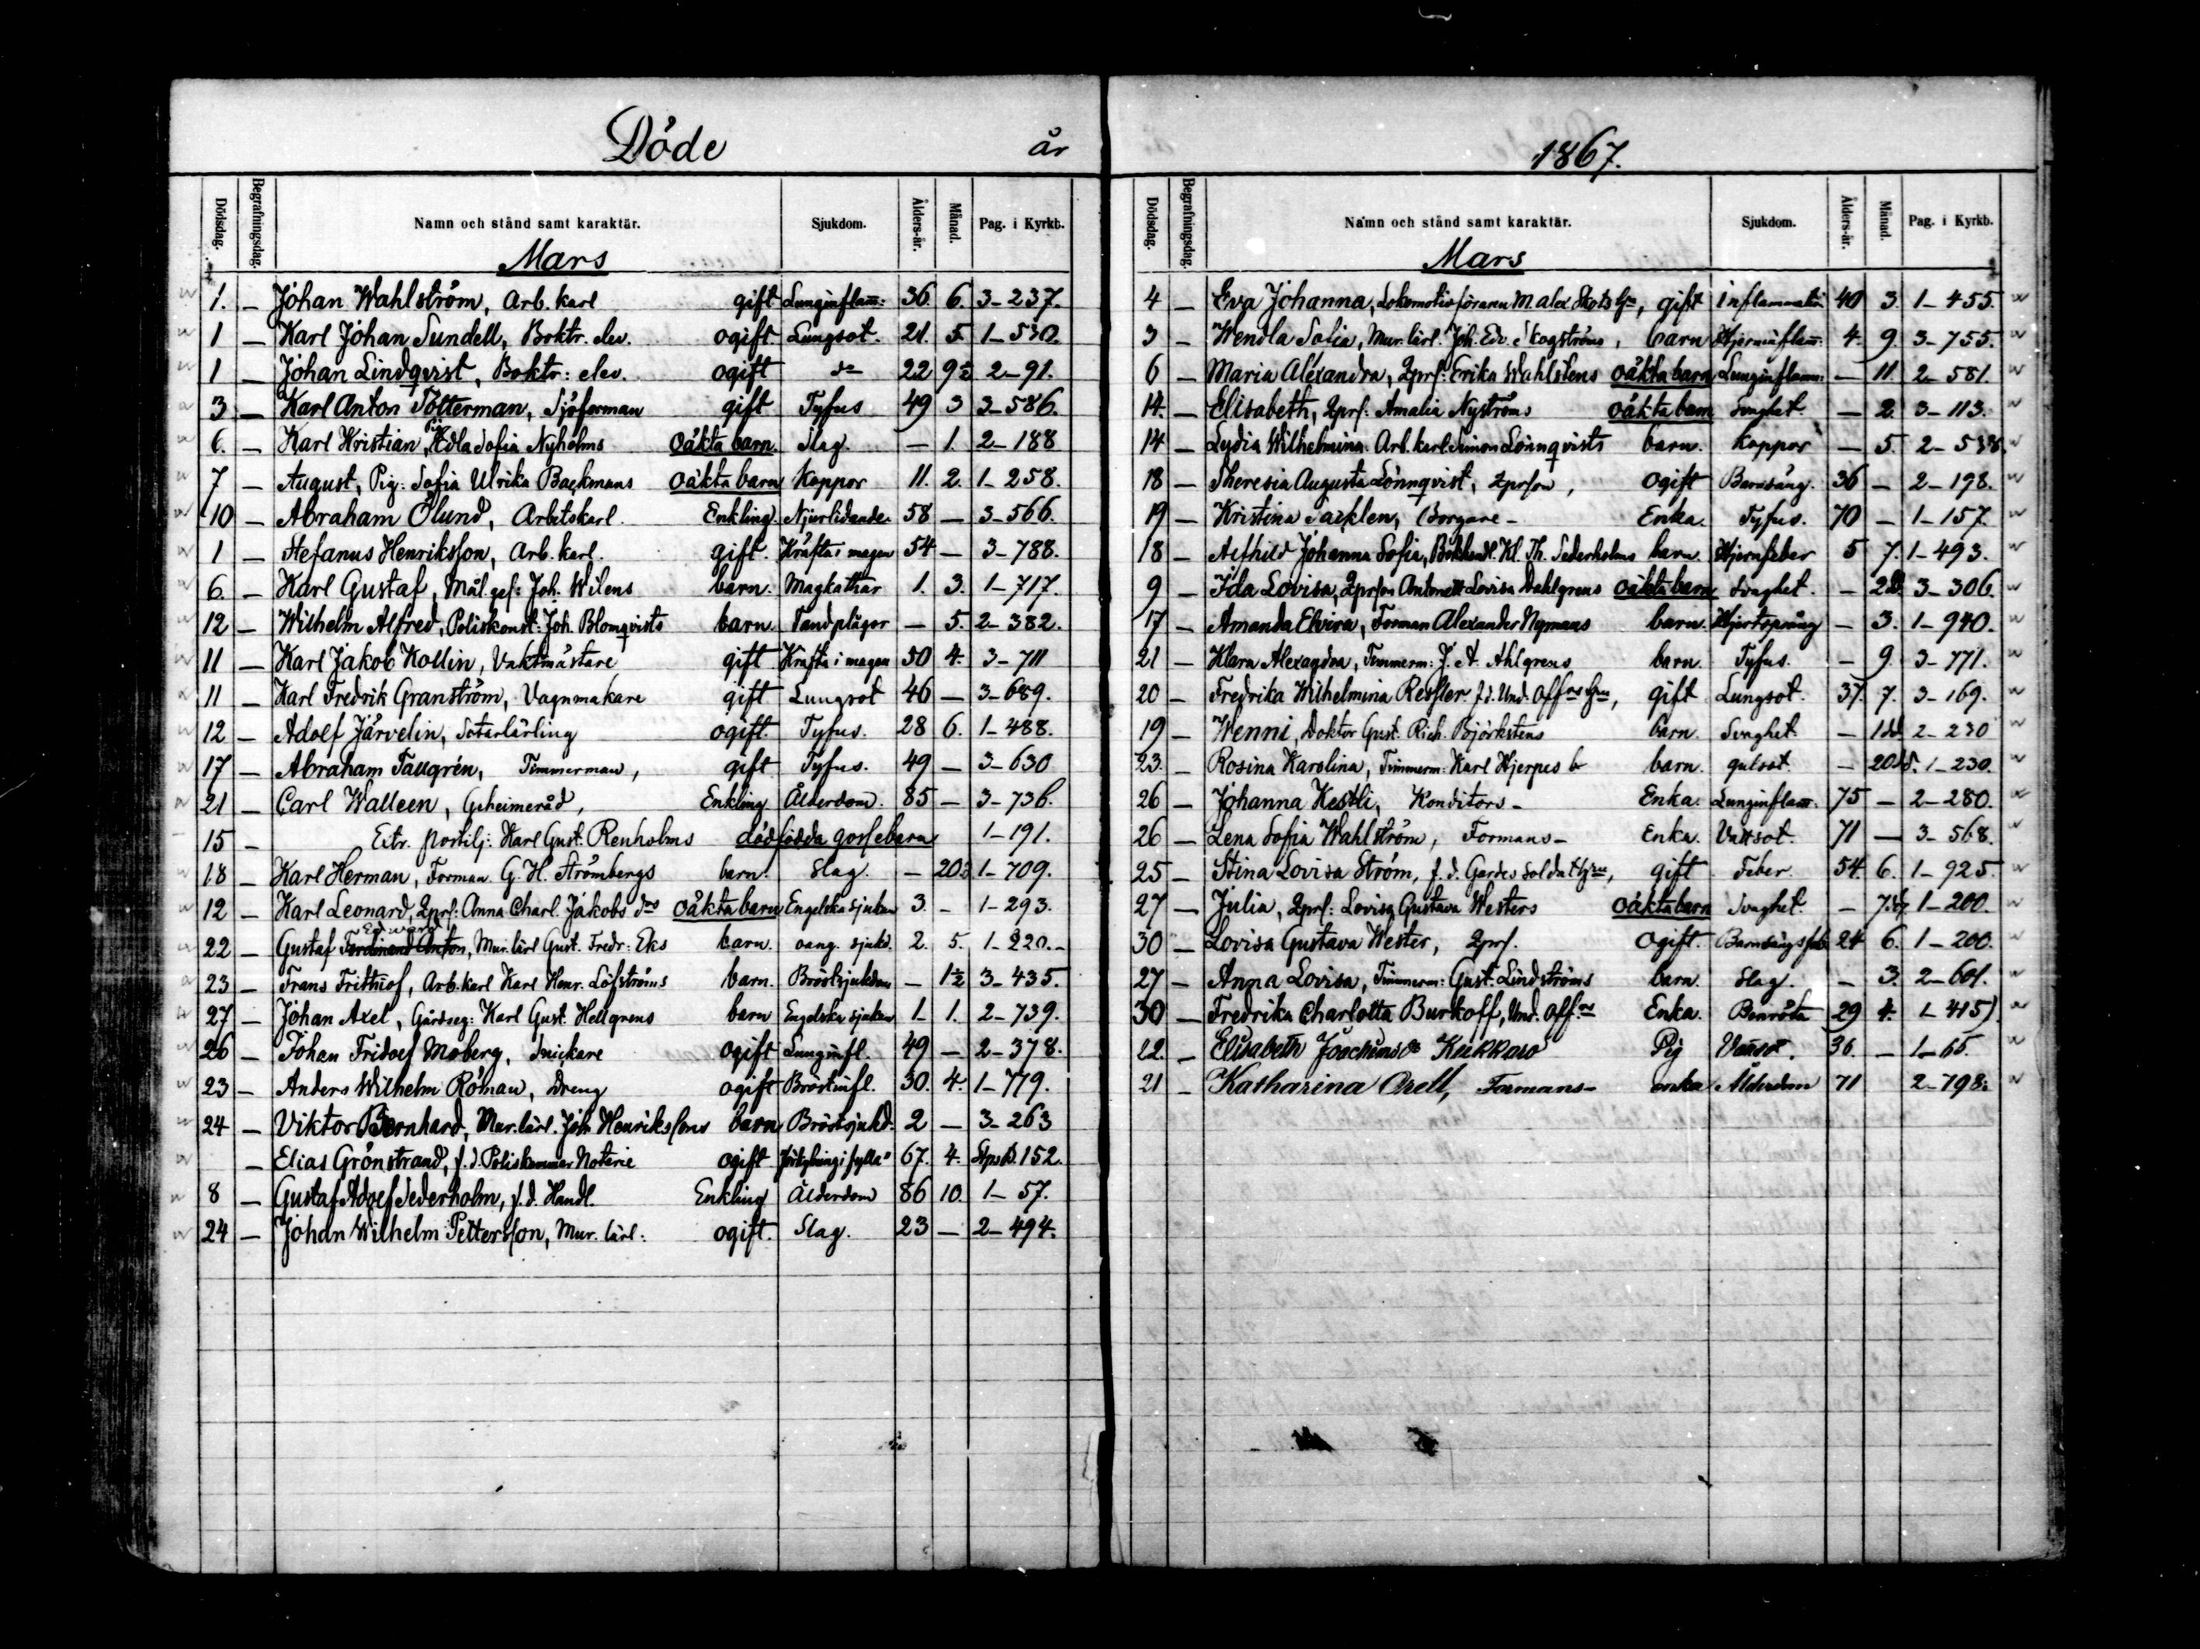 Döde år
Dödsdag. Begrafningsdag. Namn och stånd samt karaktär. Sjukdom. Ålders-år. Månad. Pag. i Kyrkb.
Mars
1. — Johan Wahlström, Arb. karl gift Lunginflam: 36. 6. 3–237.
1 — Karl Johan Sundell, Boktr. elev. ogift. Lungsot. 21. 5. 1–530.
1 — Johan Lindqvist, Boktr: elev. ogift do 22 9½ 2–91.
3 — Karl Anton Tötterman, Sjöforman gift Tyfus 49 3 3–586.
6. — Karl Kristian, Pig. Adla Sofia Nyholms oäkta barn. Slag. — 1. 2–188
7 — August, Pig: Sofia Ulrika Backmans oäkta barn Koppor 11. 2. 1–258.
10 — Abraham Ölund, Arbetskarl. Enkling Njurlidande. 58 — 3–566.
1 — Stefanus Henriksson, Arb. karl. gift. Kräfta i magen 54 — 3–788.
6. — Karl Gustaf, Mål. ges: Joh. Wilens barn. Magkathar 1. 3. 1–717.
12 — Wilhelm Alfred, Poliskonst: Joh. Blomqvists barn. Tandplågor — 5. 2–382.
11 — Karl Jakob Kollin, Vaktmästare gift. Kräfta i magen 50 4. 3–711
11 — Karl Fredrik Granström, Vagnmakare gift Lungsot 46 — 3–689.
12 — Adolf Järvelin, Sotarlärling ogift. Tyfus. 28 6. 1–488.
17 — Abraham Taugrén, Timmerman, gift Tyfus. 49 — 3–630
21 — Carl Walleen, Geheimeråd, Enkling Ålderdom. 85 — 3–736.
15 — Extr. postilj: Karl Gust: Renholms dödfödda gossebarn 1–191.
18 — Karl Herman, Forman. G. H. Strömbergs barn. Slag. — 20 1–709.
12 — Karl Leonard, Qprs: Anna Charl. Jakobs drs oäkta barn Engelska sjukan 3. — 1–293.
22 — Gustaf Edward Ferdinand Anton, Mur. lärl Gust. Fredr: Eks barn. oang. sjukd. 2. 5. 1–220.–
23 — Frans Frithiof, Arb. karl Karl Henr. Löfströms barn. Bröstsjukdom — 1½ 3–435.
27 — Johan Axel, Gårdseg: Karl Gust. Hellgrens barn Engelska sjukan 1– 1. 2–739.
26 — Johan Fridolf Moberg, Snickare ogift Lunginfl. 49 — 2–378.
23 — Anders Wilhelm Röman, Dreng ogift Bröstinfl. 30. 4. 1–779.
24 — Viktor Bernhard, Mur. lärl. Joh. Henrikssons barn Bröstsjukd. 2 — 3–263
— Elias Grönstrand, f. d. Poliskammar Notarie ogift 67. 4. 152.
8 — Gustaf Adolf Sederholm, f. d. Handl. Enkling Ålderdom 86 10. 1–57.
24 — Johan Wilhelm Pettersson, Mur. lärl. ogift. Slag. 23 — 2–494.
1867.
Dödsdag. Begrafningsdag. Namn och stånd samt karaktär. Sjukdom. Ålders-år. Månad. Pag. i Kyrkb.
Mars
4 — Eva Johanna, Lokomotivföraren Malex Skots hu, gift inflammation 40 3. 1–455.
3 — Wendla Sofia, Mur. lärl. Joh. Edv. Skogströms, barn Hjerninflam: 4. 9. 3–755.
6 — Maria Alexandra, Qprs: Erika Wahlstens oäkta barn Lunginflamm: — 11. 2–581.
14. — Elisabeth, Qprs: Amalia Nyströms oäkta barn Svaghet — 2. 3–113.
14 — Lydia Wilhelmina. Arb. karl. Simon Lönnqvists barn. koppor — 5.
18 — Theresia Augusta Lönnqvist, Qprson, ogift Barnsäng. 36 — 2–198.
19 — Kristina Sacklen, Borgare– Enka. Tyfus. 70 — 1–157.
18 — Alfhild Johanna Sofia, Bokhandl. Kl. Th. Sederholms barn Hjernfeber 5 7. 1–493.
9 — Ida Lovisa, Qprson Antonett Lovisa Dahlgrens oäkta barn Svaghet. — 2 3–306.
17 — Amanda Elvira, Forman Alexander Nymans barn. Hjertspång — 3. 1–940.
21 — Klara Alexandra, Timmerm: J. A. Ahlgrens barn Tyfus. — 9. 3–771.
20 — Fredrika Wilhelmina Ressler f. d. Und. Offrs hu, gift Lungsot. 37. 7. 3–169.
19 — Wenni, Doktor Gust. Rich. Björkstens barn. Svaghet. — 1dd 2–230
23. — Rosina Karolina, Timmerm: Karl Hjerpes barn. gulsot. — 20 d. 1–230.
26 — Johanna Kestli, Konditors– Enka. Lunginflam: 75 — 2–280.
26 — Lena Sofia Wahlström, Formans– Enka. Vattsot. 71 — 3–568.
25 — Stina Lovisa Ström, f. d. Gardes Soldat hu, gift Feber. 54. 6. 1–925.
27 — Julia, Qprs: Lovisa Gustava Westers oäkta barn Svaghet. — 1–200.
30 — Lovisa Gustava Wester, Qprs. ogift. Barnsängsfeb. 24 6. 1–200.
27 — Anna Lovisa, Timmerm: Gust. Lindströms barn. Slag. — 3. 2–601.
30 — Fredrika Charlotta Burkoff, Und. Offrs Enka. Benröta 29 4. 1–415)
22. — Elisabeth Joachimsdr Kukkaro Pig Vattsot. 36. — 1–65.
21 — Katharina Orell, Formans– enka Ålderdom 71 2–798.